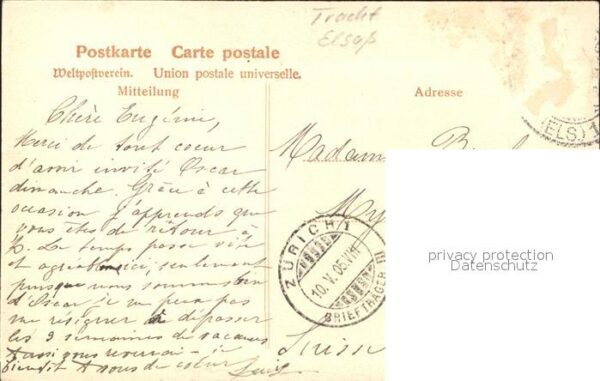 Tracht
Elsaß
Postkarte Carte postale
Weltpostverein. Union postale universelle.
Mitteilung
Adresse
(ELS.) 1
Chère Eugénie,
Merci de tout cœur
d'avoir invité Oscar
dimanche. Grâce à cette
occasion j'apprends que
vous êtes de retour à
Z. Le temps passe vite
et agréablement ici, seulement
puisque nous sommes loin
d'Oscar je ne peux pas
me résigner à dépasser
les 3 semaines de vacances
Aussi vous reverrai-je
bientôt A vous de cœur
Madame
ZÜRICH 1
10.V.05.VIII
BRIEFTRÄGER
Suisse
privacy protection
Datenschutz